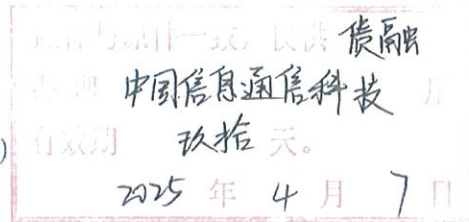 此件与原件一致，仅供 债融
办理 中国信息通信科技 用
有效期 玖拾 天。
2025 年 4 月 7 日